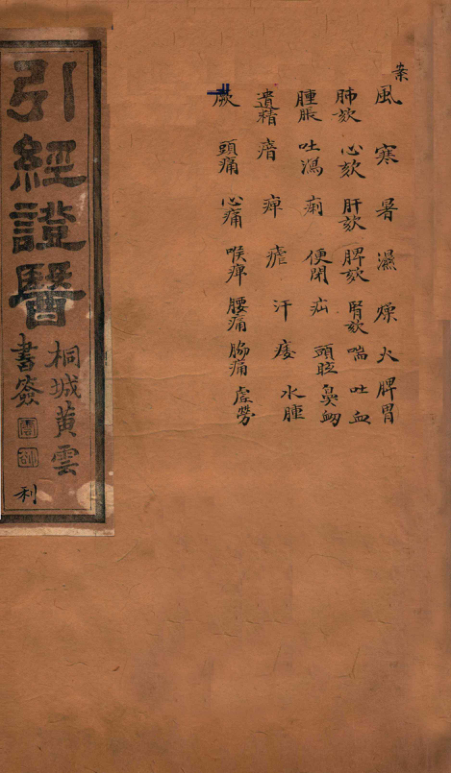 案
風 寒 暑 濕 燥 火 脾胃
肺欬 心欬 肝欬 脾欬 腎欬 喘 吐血
腫脹 吐瀉 痢 便閉 疝 頭眩 鼻衄
遺精 瘖 痺 瘧 汗 痿 水腫
厥 頭痛 心痛 喉痺 腰痛 胸痛 虛勞
引經證醫
桐城黃雲
書簽
利